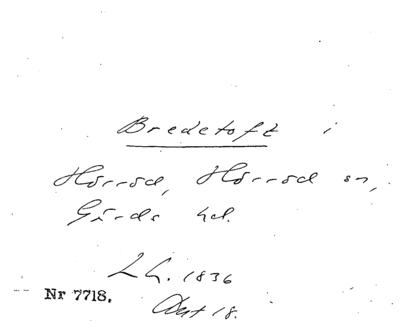 Bredetoft i
Hörröd, Hörröd sn,
Gärds hd.
LH. 1836
Nr 7718.
Akt 18.